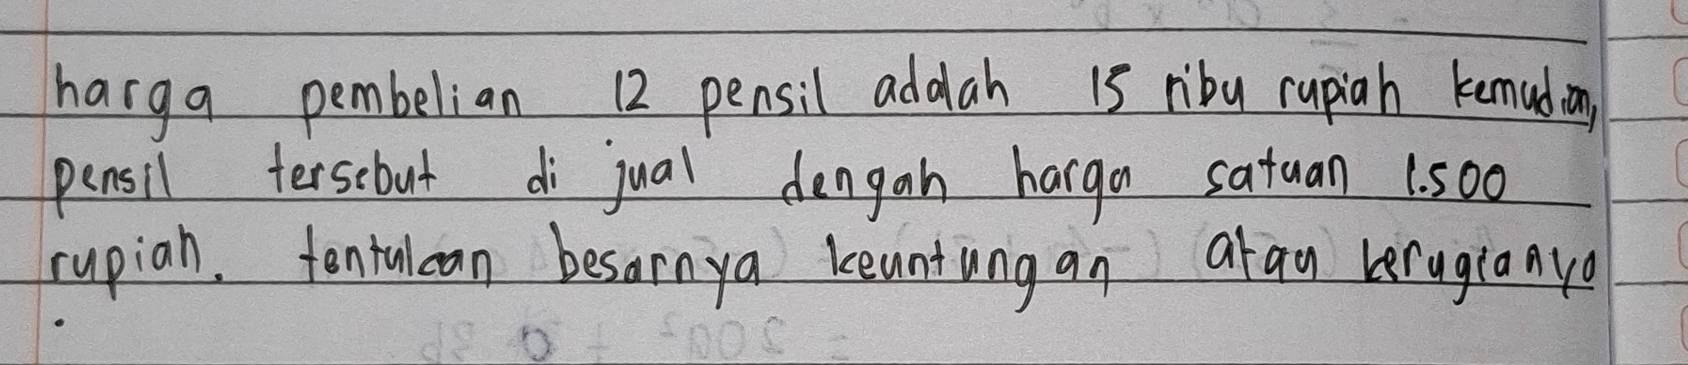 harga pembelian 12 pensil adalah 15 ribu rupiah kemudian,
pensil tersebut di jual dengan harga satuan 1.500
rupiah. tentukan besarnya keuntungan atau kerugianya
.